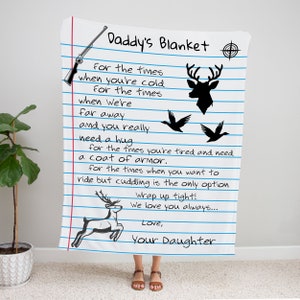 Daddy's Blanket
for the times
when you're cold
for the times
when we're
far away
and you really
need a hug
for the times you're tired and need
a coat of armor.
for the times when you want to
ride but cuddling is the only option
wrap up tight!
We love you always...
Love,
Your Daughter